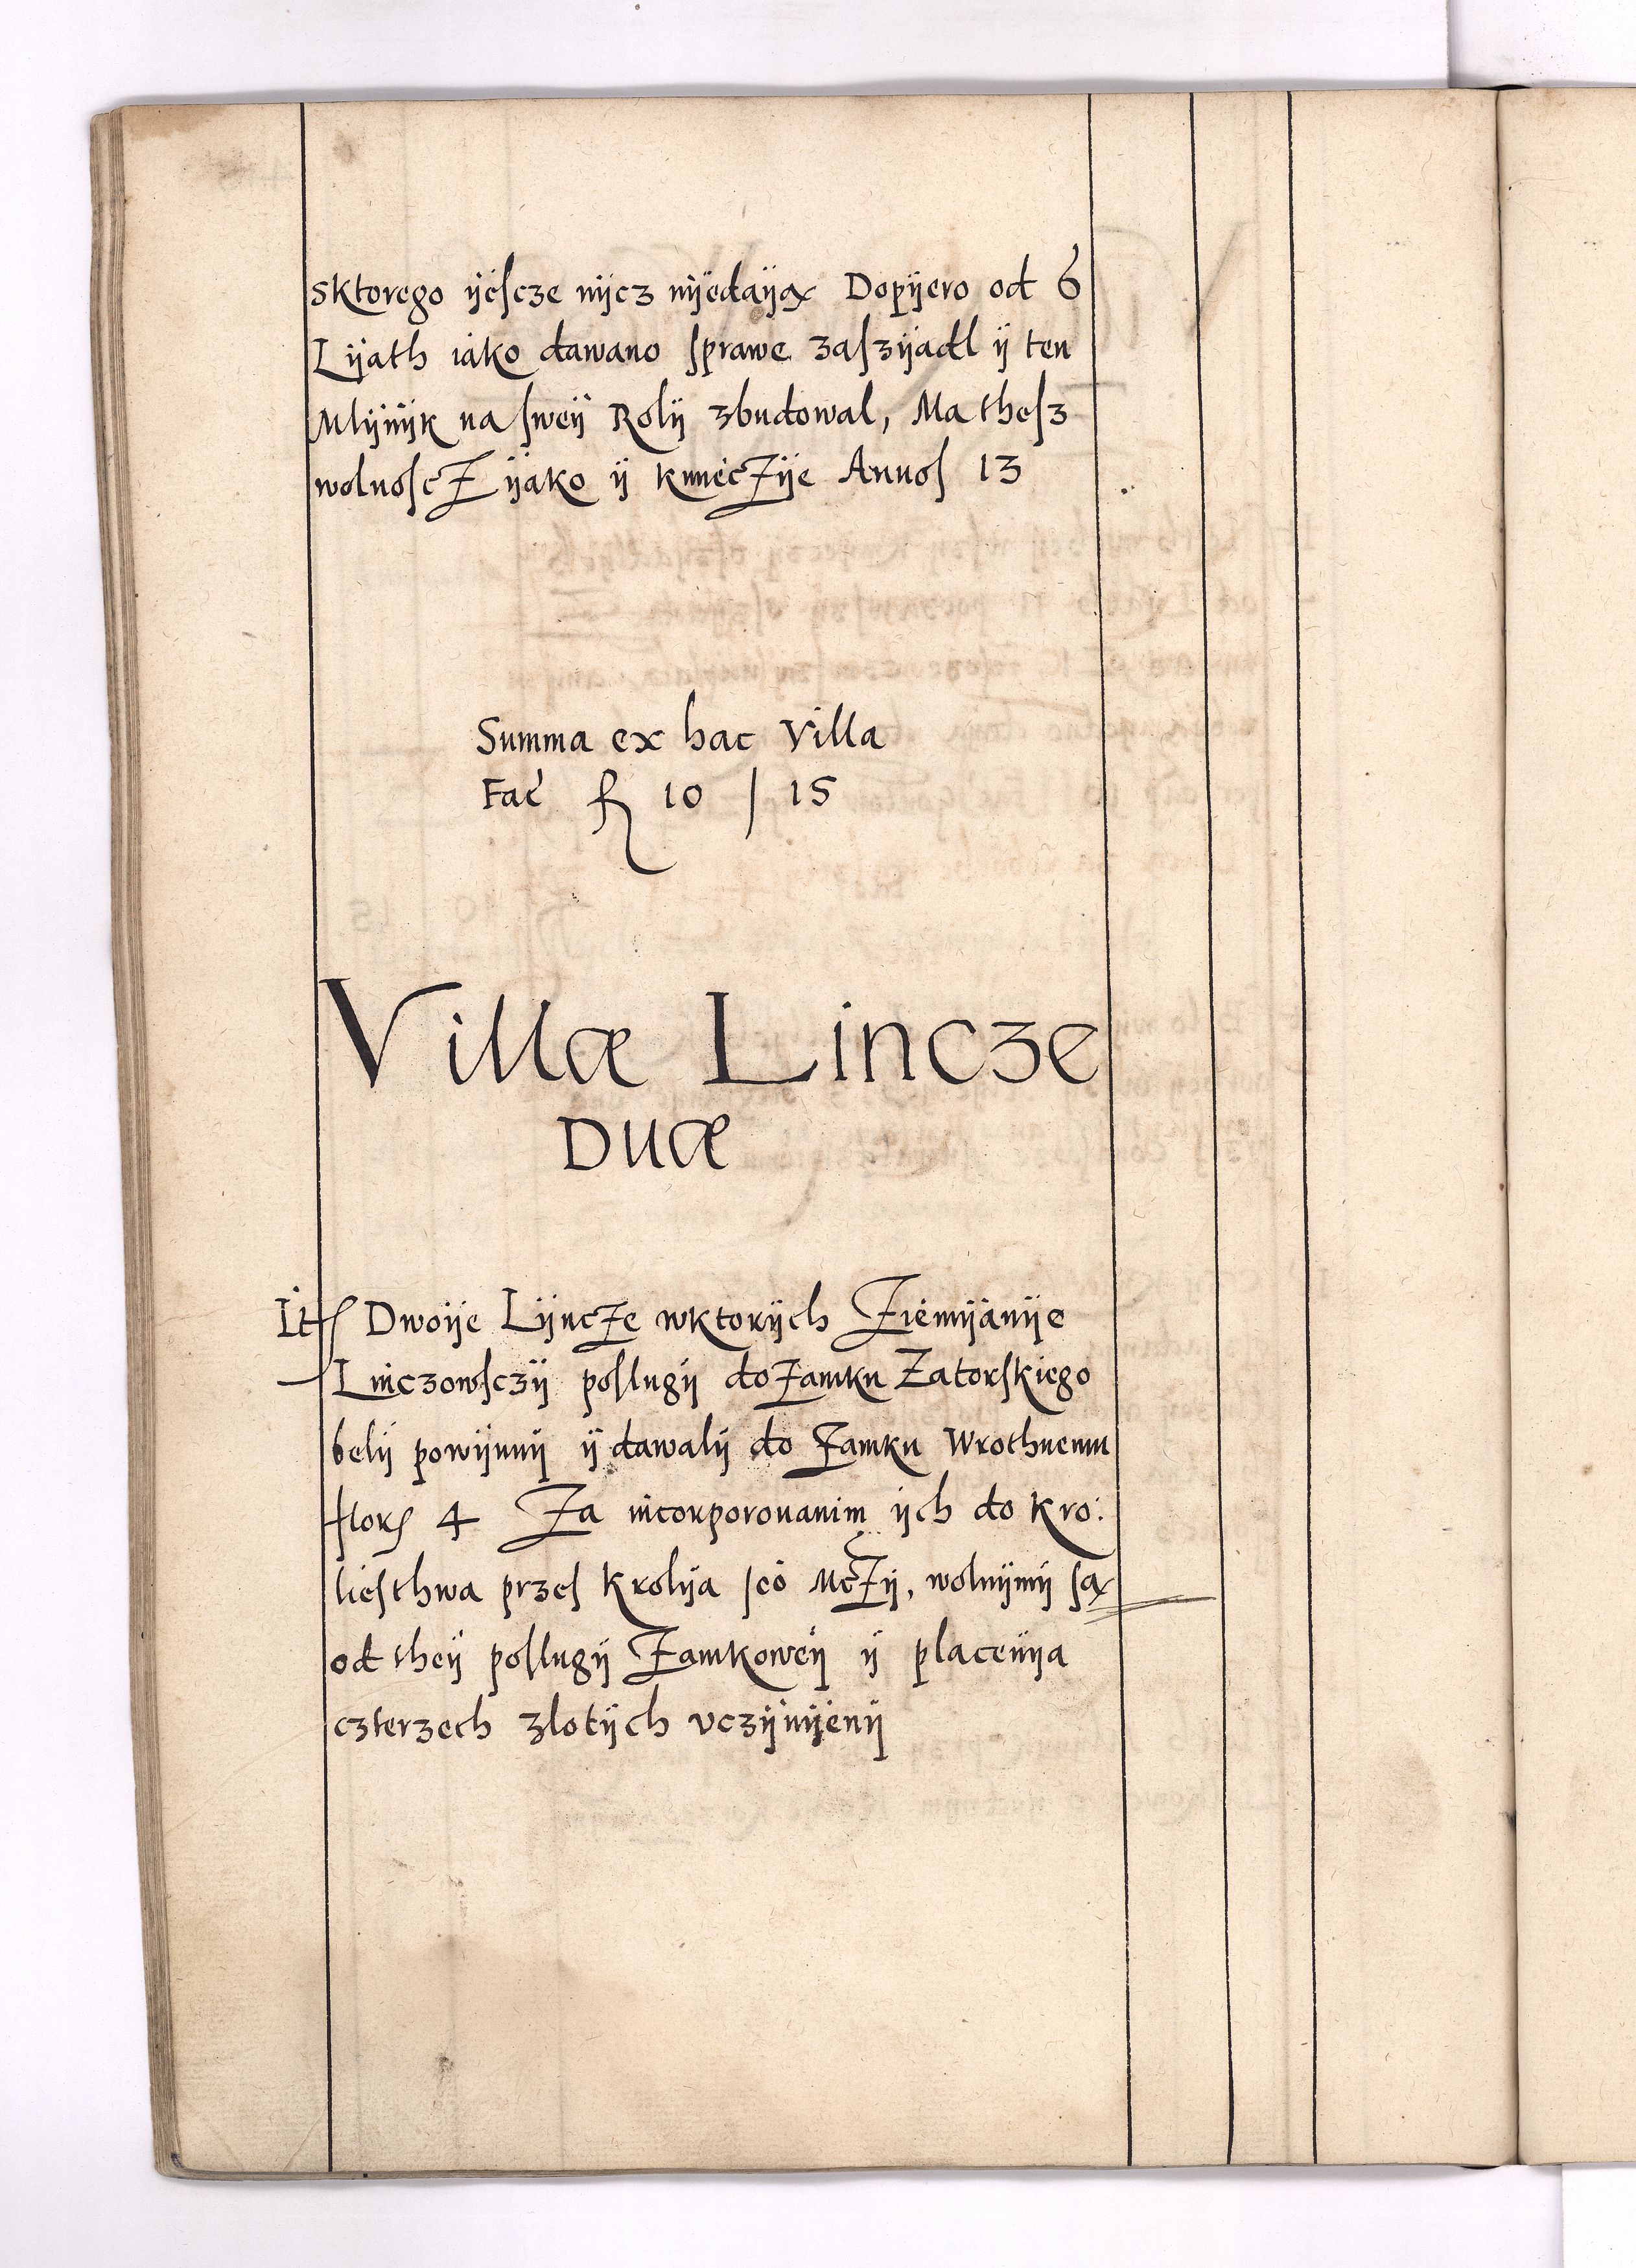 sktorego ÿeſcze nÿcz nÿedaÿą Dopÿero od 6
Lÿath iako dawano ſprawe zaſzÿadl ÿ ten
Mlÿnÿk na ſweÿ Rolÿ zbudowal, Ma theſz
wolnoſcZ ÿako ÿ kmiecZÿe Annoſ 13
Summa ex hac Villa
Fac fl 10 / 15
Villæ Lincze
Duæ
Itē Dwoÿe LÿncZe wktorÿch Ziemÿanÿe
Linczowſczÿ poſlugÿ do Zamku Zatorſkiego
belÿ powÿnnÿ ÿ dawalÿ do Zamku Wrothnemu
flor 4 Za incorporovanim ÿch do Kro:
lieſthwa przeſ Krolÿa ieo McZÿ, wolnÿmÿ ſą
od theÿ poſlugÿ Zamkoweÿ ÿ placenÿa
czterzech zlotÿch vczÿnÿenÿ